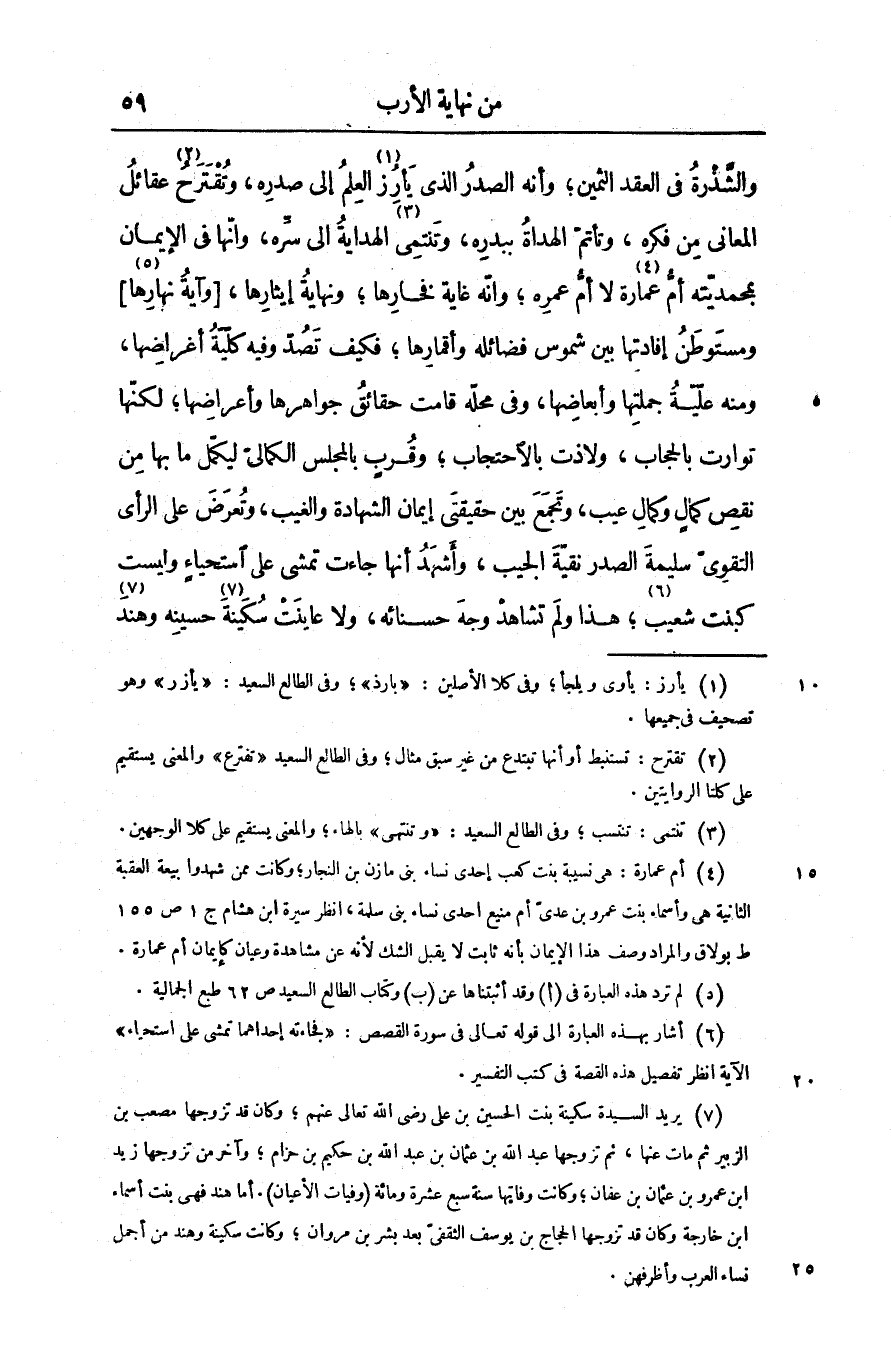 من نهاية الأرب ٥٩
والشَّذْرةُ فى العقد الثمين؛ وأنه الصدرُ الذى يَأرِز (١) العِلمُ إلى صدره، وتُقْتَرَحُ (٢) عقائلُ
المعانى مِن فكره، وتأتمّ الهداةُ ببدره، وتَنتمِى (٣) الهدايةُ الى سرّه، وانّها فى الإيمـان
بمحمديّته أمُّ عمارة (٤) لا أمُّ عمره؛ وانّه غاية فخـارها؛ ونهايةُ إيثارها، [وآيةُ نهارها] (٥)
ومستَوطَنُ إفادتها بين شموس فضائله وأقمارها؛ فكيف تَصُدّ وفيه كلّيّةُ أغراضها،
ومنه علّيّـةُ جملتِها وأبعاضِها، وفى محلّه قامت حقائقُ جواهرها وأعراضِها؛ لكنّها ٥
توارت بالحجاب، ولاذت بالاحتجاب؛ وقُـرِب بالمجلس الكمالىّ ليكمّل ما بها مِن
نقصِ كمالٍ وكمالِ عيب، وتَجمَعَ بين حقيقتَى إيمان الشهادة والغيب، وتُعرَضَ على الرأى
التقوىّ سليمةَ الصدر نقيّةَ الجيب، وأَشهَدُ أنها جاءت تمشى على ٱستحياءٍ وليست
كبنت شعيب (٦)؛ هـذا ولَم تشاهدْ وجهَ حسـنائه، ولا عاينَتْ سُكَينةَ (٧) حسينِه وهندَ (٧)
(١) يأرز : يأوى ويلجأ؛ وفى كلا الأصلين : «بارذ»؛ وفى الطالع السعيد : «يأزر» وهو ١٠
تصحيف فى جميعها .
(٢) تقترح : تستنبط أو أنها تبتدع من غير سبق مثال؛ وفى الطالع السعيد «تفترع» والمعنى يستقيم
على كلتا الروايتين .
(٣) تنتمى : تنتسب؛ وفى الطالع السعيد : «وتنتهى» بالهاء؛ والمعنى يستقيم على كلا الوجهين .
(٤) أم عمارة : هى نسيبة بنت كعب إحدى نساء بنى مازن بن النجار؛ وكانت ممن شهدوا بيعة العقبة ١٥
الثانية هى وأسماء بنت عمرو بن عدىّ أم منيع احدى نساء بنى سلمة، انظر سيرة ابن هشام ج ١ ص ١٥٥
ط بولاق والمراد وصف هذا الإيمان بأنه ثابت لا يقبل الشك لأنه عن مشاهدة وعيان كإيمان أم عمارة .
(٥) لم ترد هذه العبارة فى (أ) وقد أثبتناها عن (ب) وكتاب الطالع السعيد ص ٦٢ طبع الجمالية .
(٦) أشار بهـذه العبارة الى قوله تعـالى فى سورة القصص : «فجاءته إحداهما تمشى على استحياء»
الآية انظر تفصيل هذه القصة فى كتب التفسير . ٢٠
(٧) يريد السـيدة سكينة بنت الحسين بن على رضى الله تعالى عنهم؛ وكان قد تزوجها مصعب بن
الزبير ثم مات عنها، ثم تزوجها عبد الله بن عثمان بن عبد الله بن حكيم بن حزام؛ وآخر من تزوجها زيد
ابن عمرو بن عثمان بن عفان؛ وكانت وفاتها سنة سبع عشرة ومائة (وفيات الأعيان). أما هند فهى بنت أسماء
ابن خارجة وكان قد تزوجها الحجاج بن يوسف الثقفىّ بعد بشر بن مروان؛ وكانت سكينة وهند من أجمل
نساء العرب وأظرفهن . ٢٥